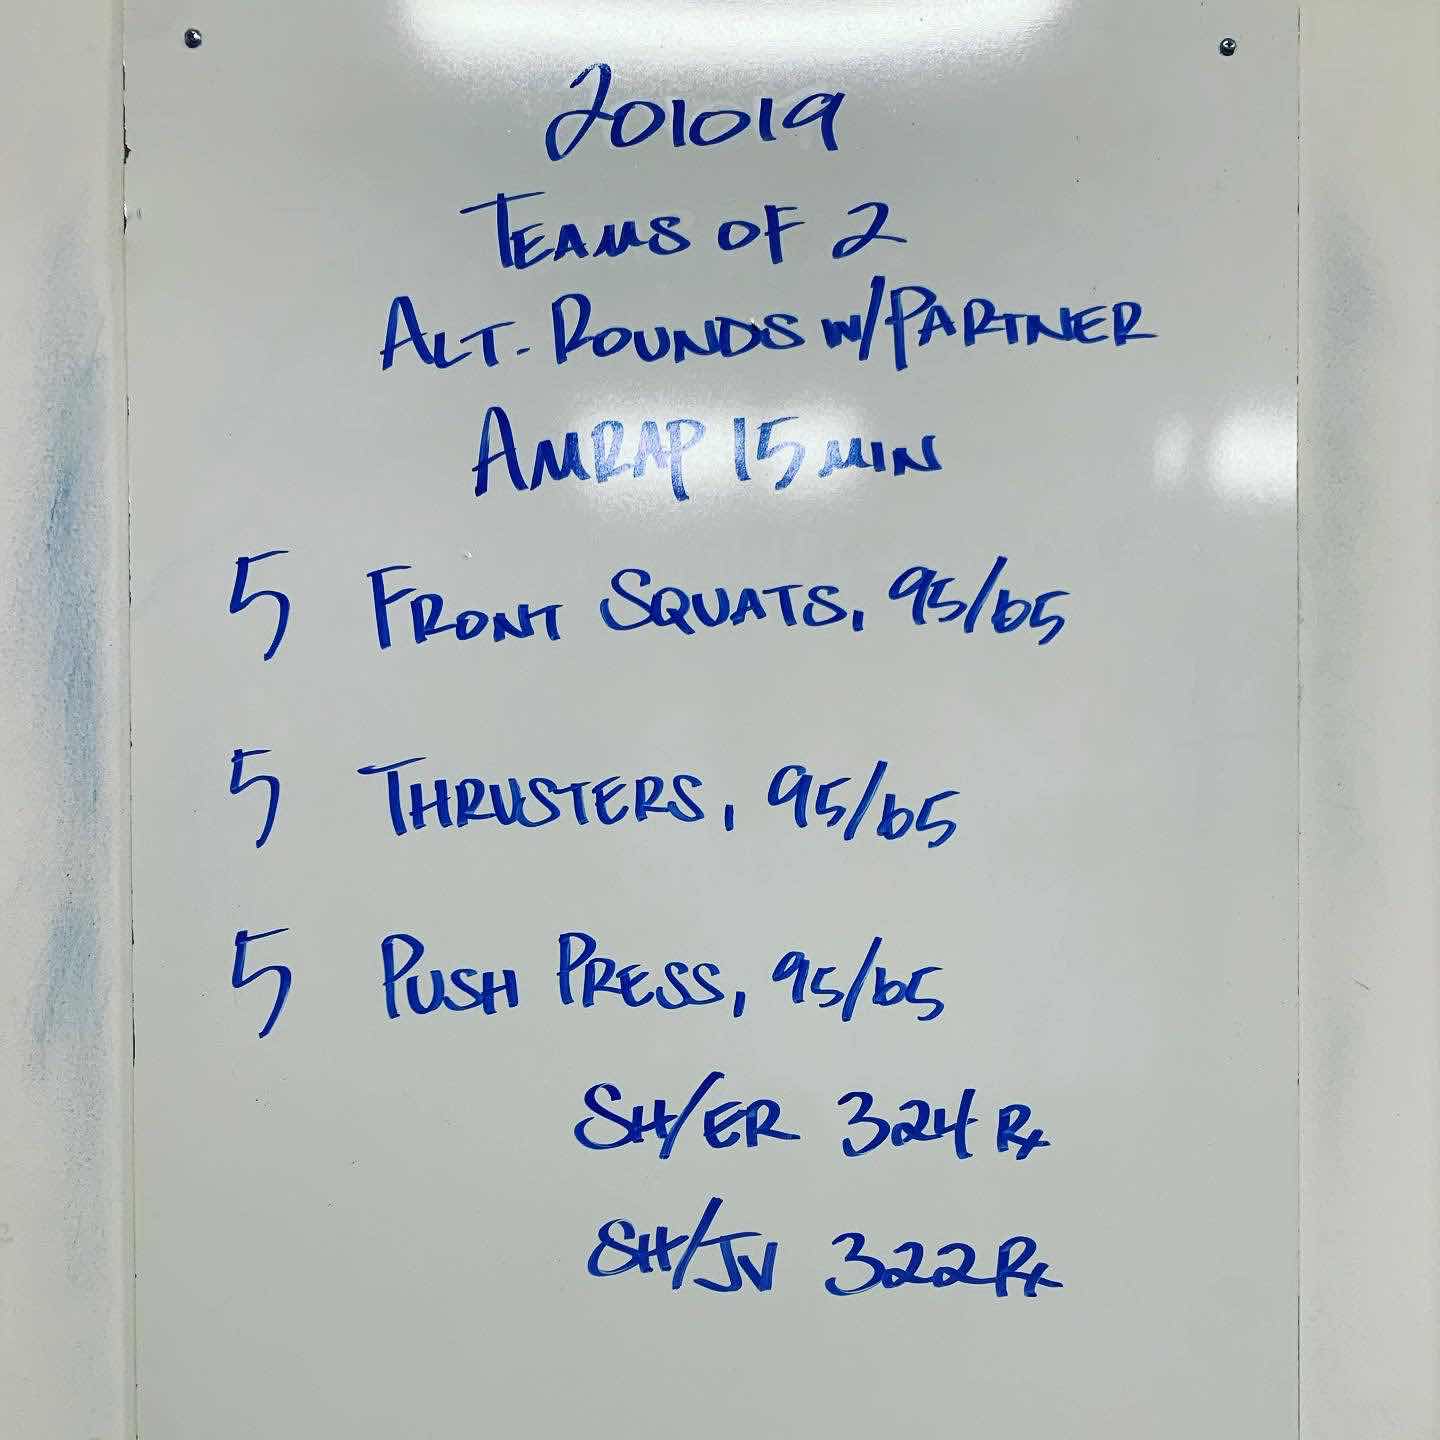 201019
TEAMS OF 2
ALT. ROUNDS W/PARTNER
AMRAP 15 MIN
5 FRONT SQUATS, 95/65
5 THRUSTERS, 95/65
5 PUSH PRESS, 95/65
SH/ER 324 Rx
SH/JV 322 Rx